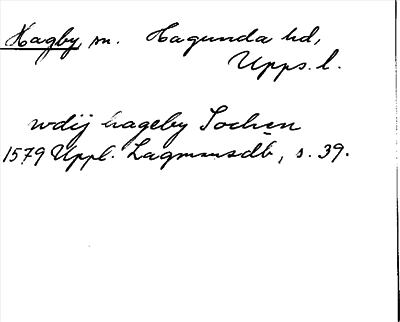 Hagby, sn. Hagunda hd,
Upps. l.
wdij hageby Sochen
1579 Uppl. Lagmansdb, s. 39.